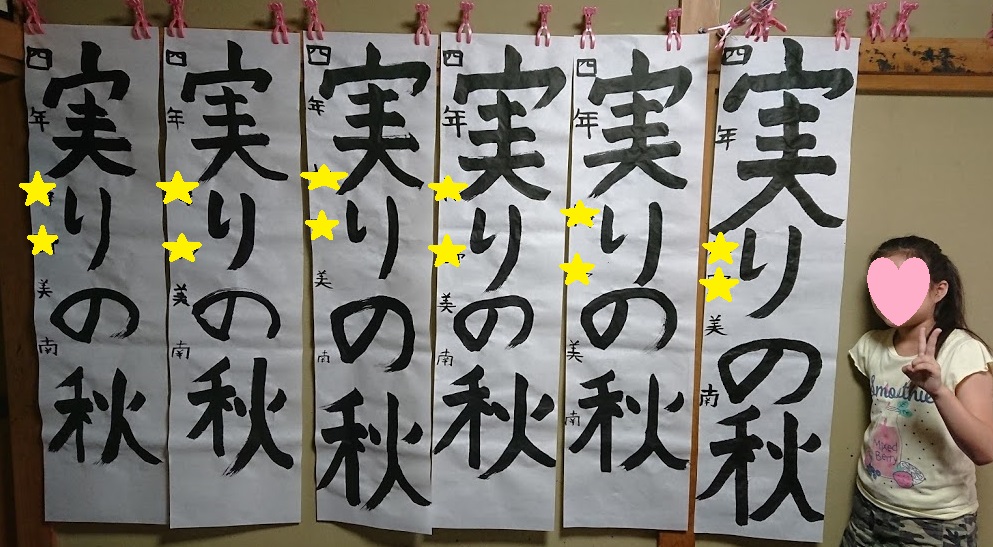 実りの秋
四年 美南
実りの秋
四年 美南
実りの秋
四年 美南
実りの秋
四年 美南
実りの秋
四年 美南
実りの秋
四年 美南
Smoothie
MIXED
BERRY